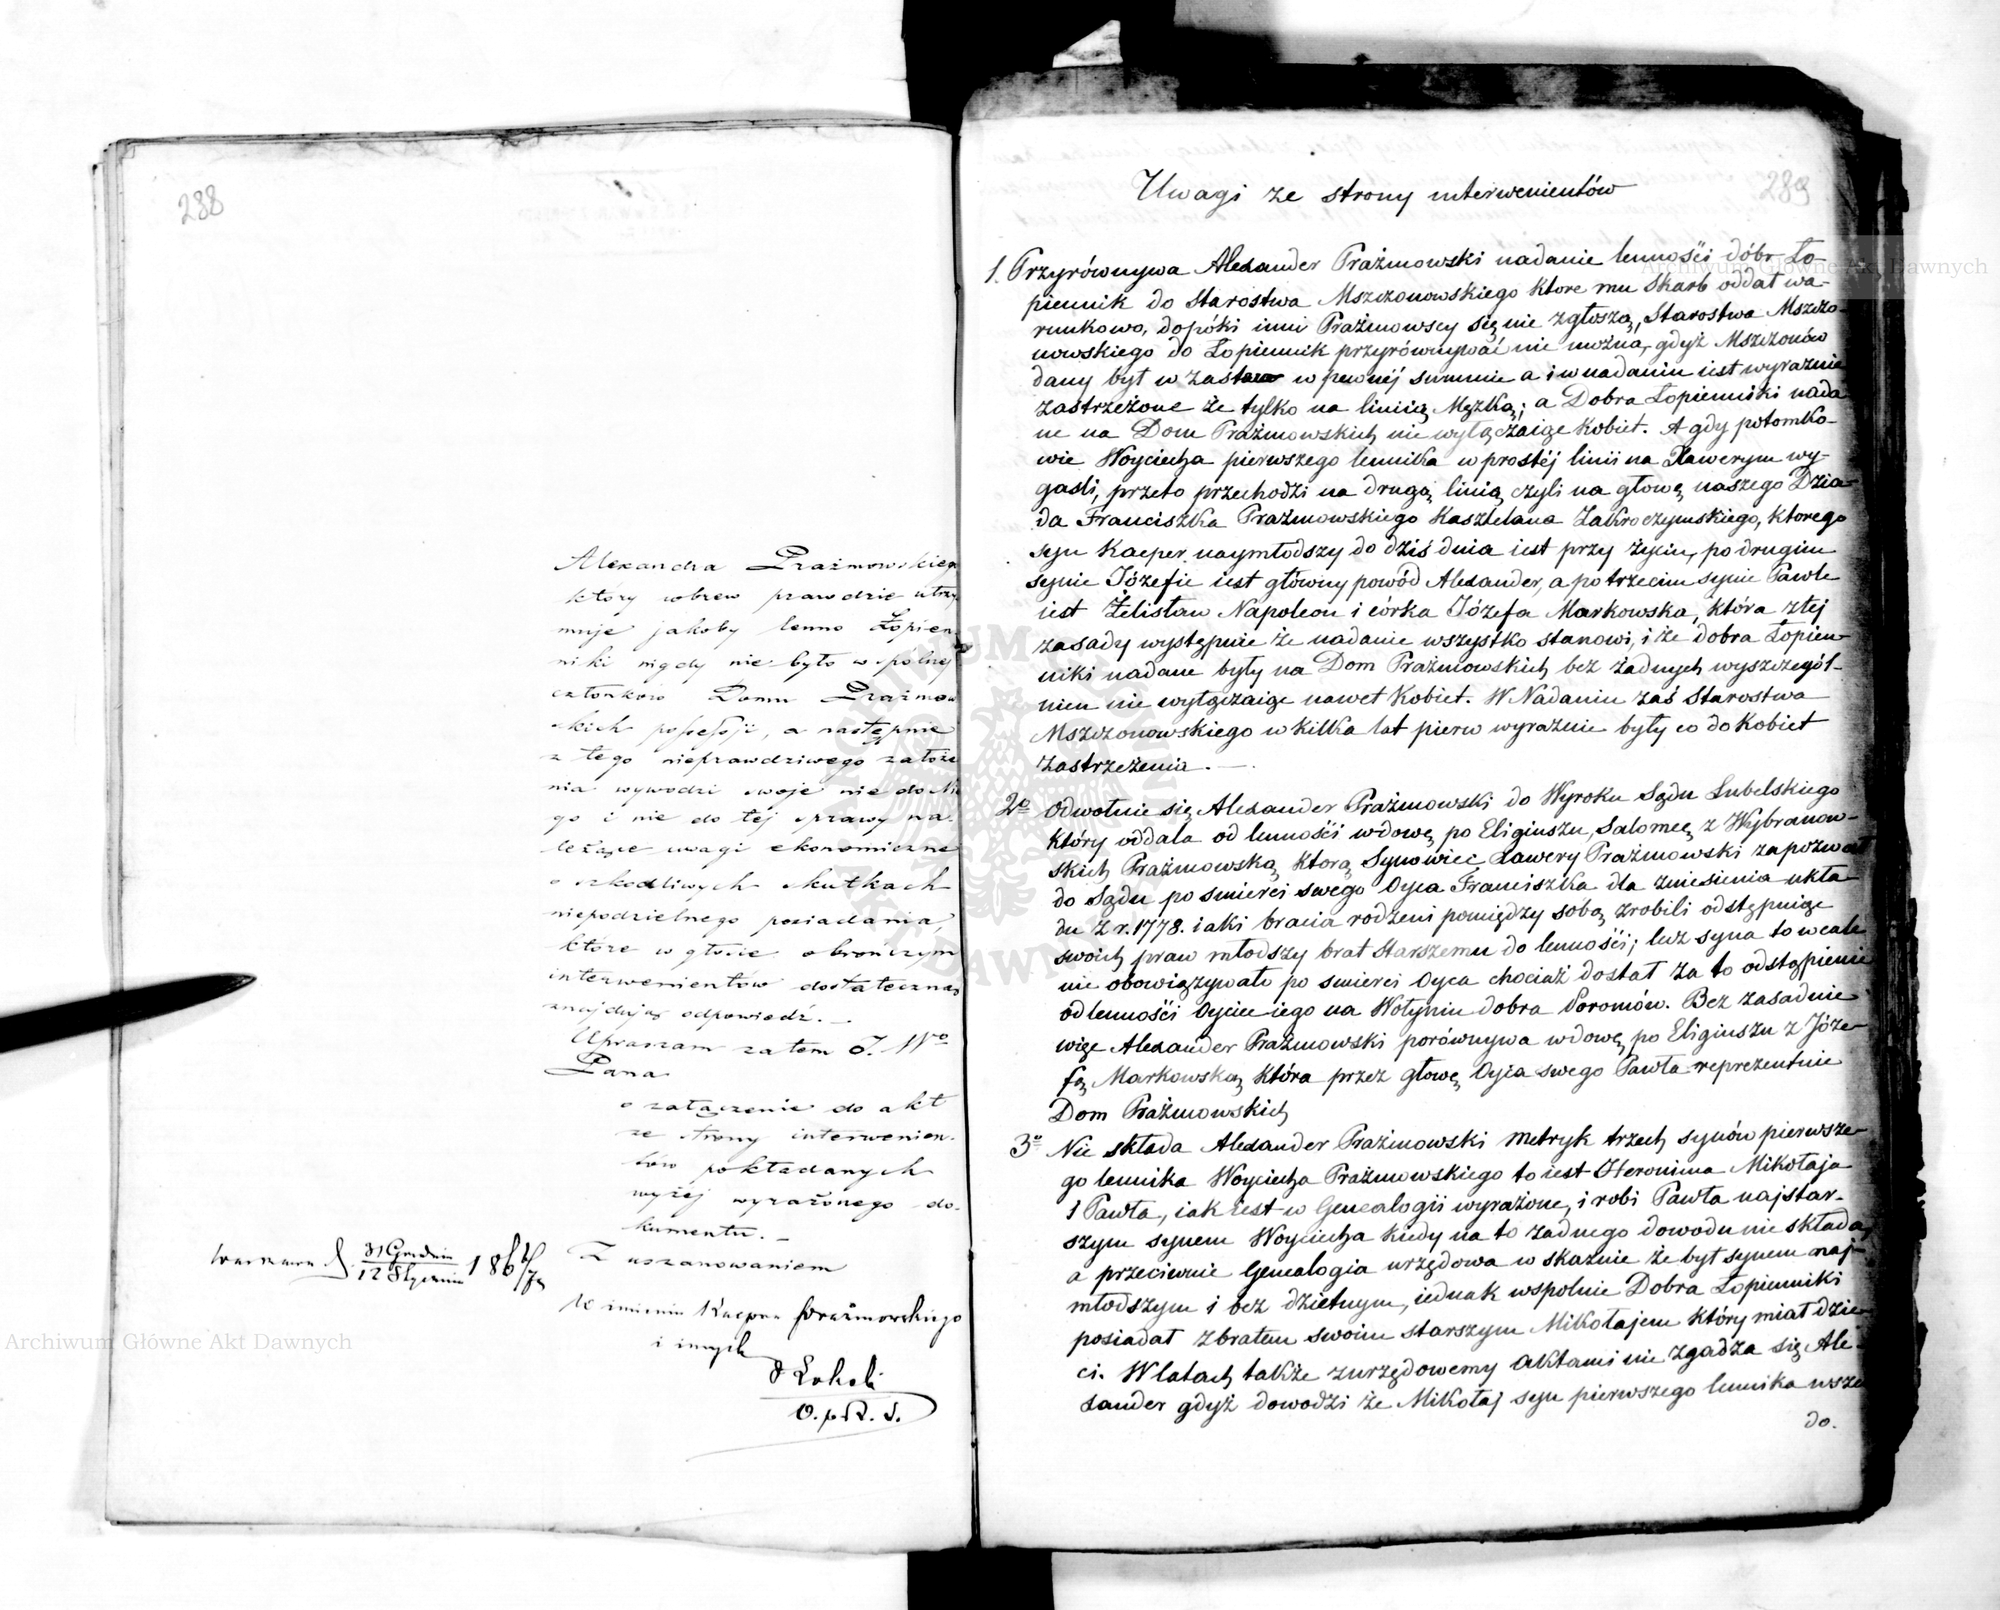 288
Alexandra Prażmowskiego
który wbrew prawdzie utrzy
muje jakoby lenno Łopien
niki nigdy nie było w spólnej
członków Domu Prażmow
skich possessji, a następnie
z tego nieprawdziwego założe
nia wywodzi swoje nie do Nie
go i nie do tej sprawy na-
leżące uwagi ekonomiczne
o szkodliwych skutkach
niepodzielnego posiadania,
które w głosie obrończym
interwenientów dostateczną
znajdują odpowiedź. –
Upraszam zatem J. Wo
Pana
o załączenie do akt
ze strony interwenien-
tów pokładanych
wyżej wyrażonego do-
kumentu. –
Z uszanowaniem
Warszawa d. 31 Grudnia
12 Stycznia
W imieniu Kacpra Prażmowskiego
i innych
O. p. R. S.
289
Uwagi ze strony interwenientów
1. Przyrównywa Alexander Prażmowski nadanie lennośći dóbr Ło-
piennik do Starostwa Mszczonowskiego ktore mu Skarb oddał wa-
runkowo, dopóki inni Prażmowscy się nie zgłoszą, Starostwa Mszczo-
nowskiego do Łopiennik przyrównywać nie można, gdyż Mszczonów
dany był w zastaw w pewnéj summie a i w nadaniu iest wyraznie
zastrzeżone że tylko na liniią Męzką; a Dobra Łopienniki nada
ne na Dom Prażmowskich nie wyłączaiąc kobiet. A gdy potomko-
wie Woyciecha pierwszego lennika w prostéj linii na Xawerym wy-
gasli, przeto przechodzi na drugą linią czyli na głowę naszego Dzia-
da Franciszka Prażmowskiego Kasztelana Zakroczymskiego, ktorego
syn Kacper naymłodszy do dziś dnia iest przy życiu, po drugim
synie Józefie iest główny powód Alexander, a po trzecim synie Pawle
iest Żelisław Napoleon i córka Józefa Markowska, która z téj
zasady występuie że nadanie wszystko stanowi, i że dobra Łopien-
niki nadane były na Dom Prażmowskich bez żadnych wyszczegól-
nien nie wyłączaiąc nawet Kobiet. W Nadaniu zaś Starostwa
Mszczonowskiego w kilka lat pierw wyraznie były co do Kobiet
zastrzeżenia. –
2o Odwołuie się Alexander Prażmowski do Wyroku Sądu Lubelskiego
który oddala od lennośći wdowę po Eligiuszu, Salomeę z Wybranow-
skich Prażmowską, ktorą Synowiec Xawery Prażmowski zapozwał
do Sądu po smierci swego Oyca Franciszka dla zniesienia ukła-
du z r. 1778. iaki bracia rodzeni pomiędzy sobą zrobili odstępuiąc
swoich praw młodszy brat Starszemu do lennośći; lecz syna to wcale
nie obowiązywało po smierci Oyca chociaż dostał za to odstąpienie
od lennośći Oyciec iego na Wołyniu dobra Poromów. Bez zasadnie
więc Alexander Prażmowski porównywa wdowę po Eligiuszu z Józe-
fą Markowską, która przez głowę Oyca swego Pawła reprezentuie
Dom Prażmowskich
3o Nie składa Alexander Prażmowski metryk trzech synów pierwsze-
go lennika Woyciecha Prażmowskiego to iest Heronima Mikołaja
i Pawła, iak iest w Genealogii wyrażone, i robi Pawła najstar-
szym synem Woyciecha kiedy na to żadnego dowodu nie składa,
a przeciwnie Genealogia urzędowa wskazuie że był synem naj-
młodszym i bez dzietnym, iednak wspolnie Dobra Łopienniki
posiadał z bratem swoim starszym Mikołajem który miał dzie-
ci. W latach także z urzędowemy aktami nie zgadza się Ale-
xander gdyż dowodzi że Mikołaj syn pierwszego lennika wszedł
do.
Archiwum Główne Akt Dawnych
Archiwum Główne Akt Dawnych